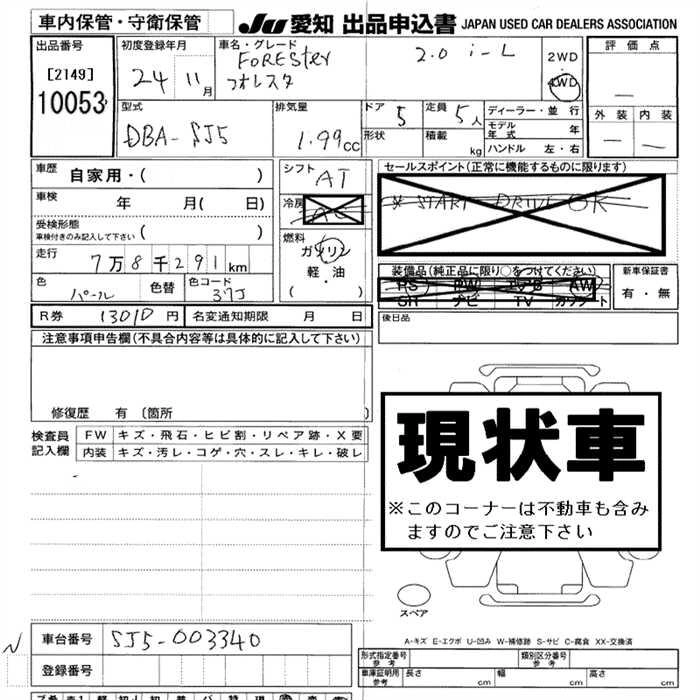 車内保管・守衛保管 JU 愛知 出品申込書 JAPAN USED CAR DEALERS ASSOCIATION
出品番号 初度登録年月 車名・グレード 2WD 評価点
[2149] 24 11月 FORESter 2.0 i-L 4WD
10053 フオレスタ —
型式 排気量 ドア 5 定員 5人 ディーラー・並行 外装 内装
DBA-SJ5 1.99cc 形状 積載 kg モデル年式 年 — —
ハンドル 左・右
車歴 自家用・( ) シフト AT セールスポイント(正常に機能するものに限ります)
車検 年 月( 日) 冷房 AC ※ START DRIVE OK
受検形態 ( )
車検付きのみ記入して下さい
燃料 ガソリン
走行 7万8千291km 軽・油 装備品(純正品に限り○をつけてください) 新車保証書
色 パール 色替 色コード 37J ( ) RS PW エアB AW 有・無
SR ナビ TV カワシート
R券 13010円 名変通知期限 月 日 後日品
注意事項申告欄(不具合内容等は具体的に記入して下さい)
修復歴 有 〔箇所 〕
検査員 FW キズ・飛石・ヒビ割・リペア跡・X要
記入欄 内装 キズ・汚レ・コゲ・穴・スレ・キレ・破レ
現状車
※このコーナーは不動車も含み
ますのでご注意下さい
スペア
A-キズ E-エクボ U-凹み W-補修跡 S-サビ C-腐食 XX-交換済
N 車台番号 SJ5-003340
登録番号
形式指定番号 参考 類別区分番号 参考
車庫証明用 参考 長さ cm 幅 cm 高さ cm